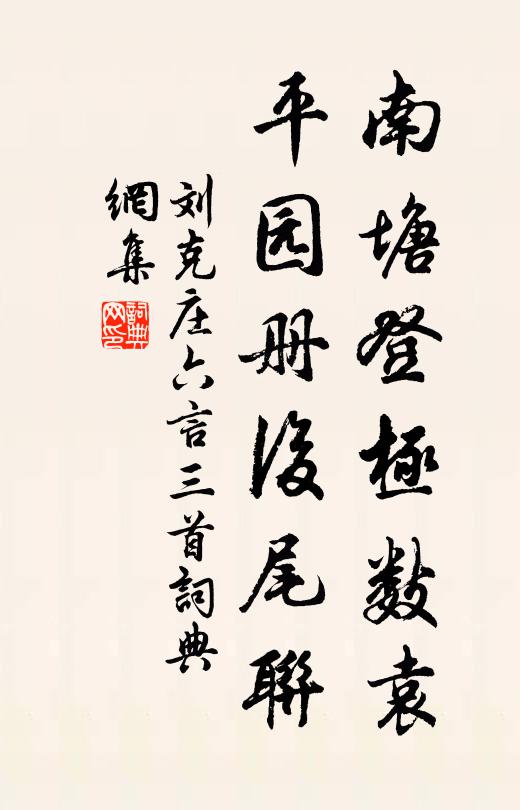 南塘登極数袁
平园册后尾聯
刘克庄六言三首詞典
網集
詞典
网印